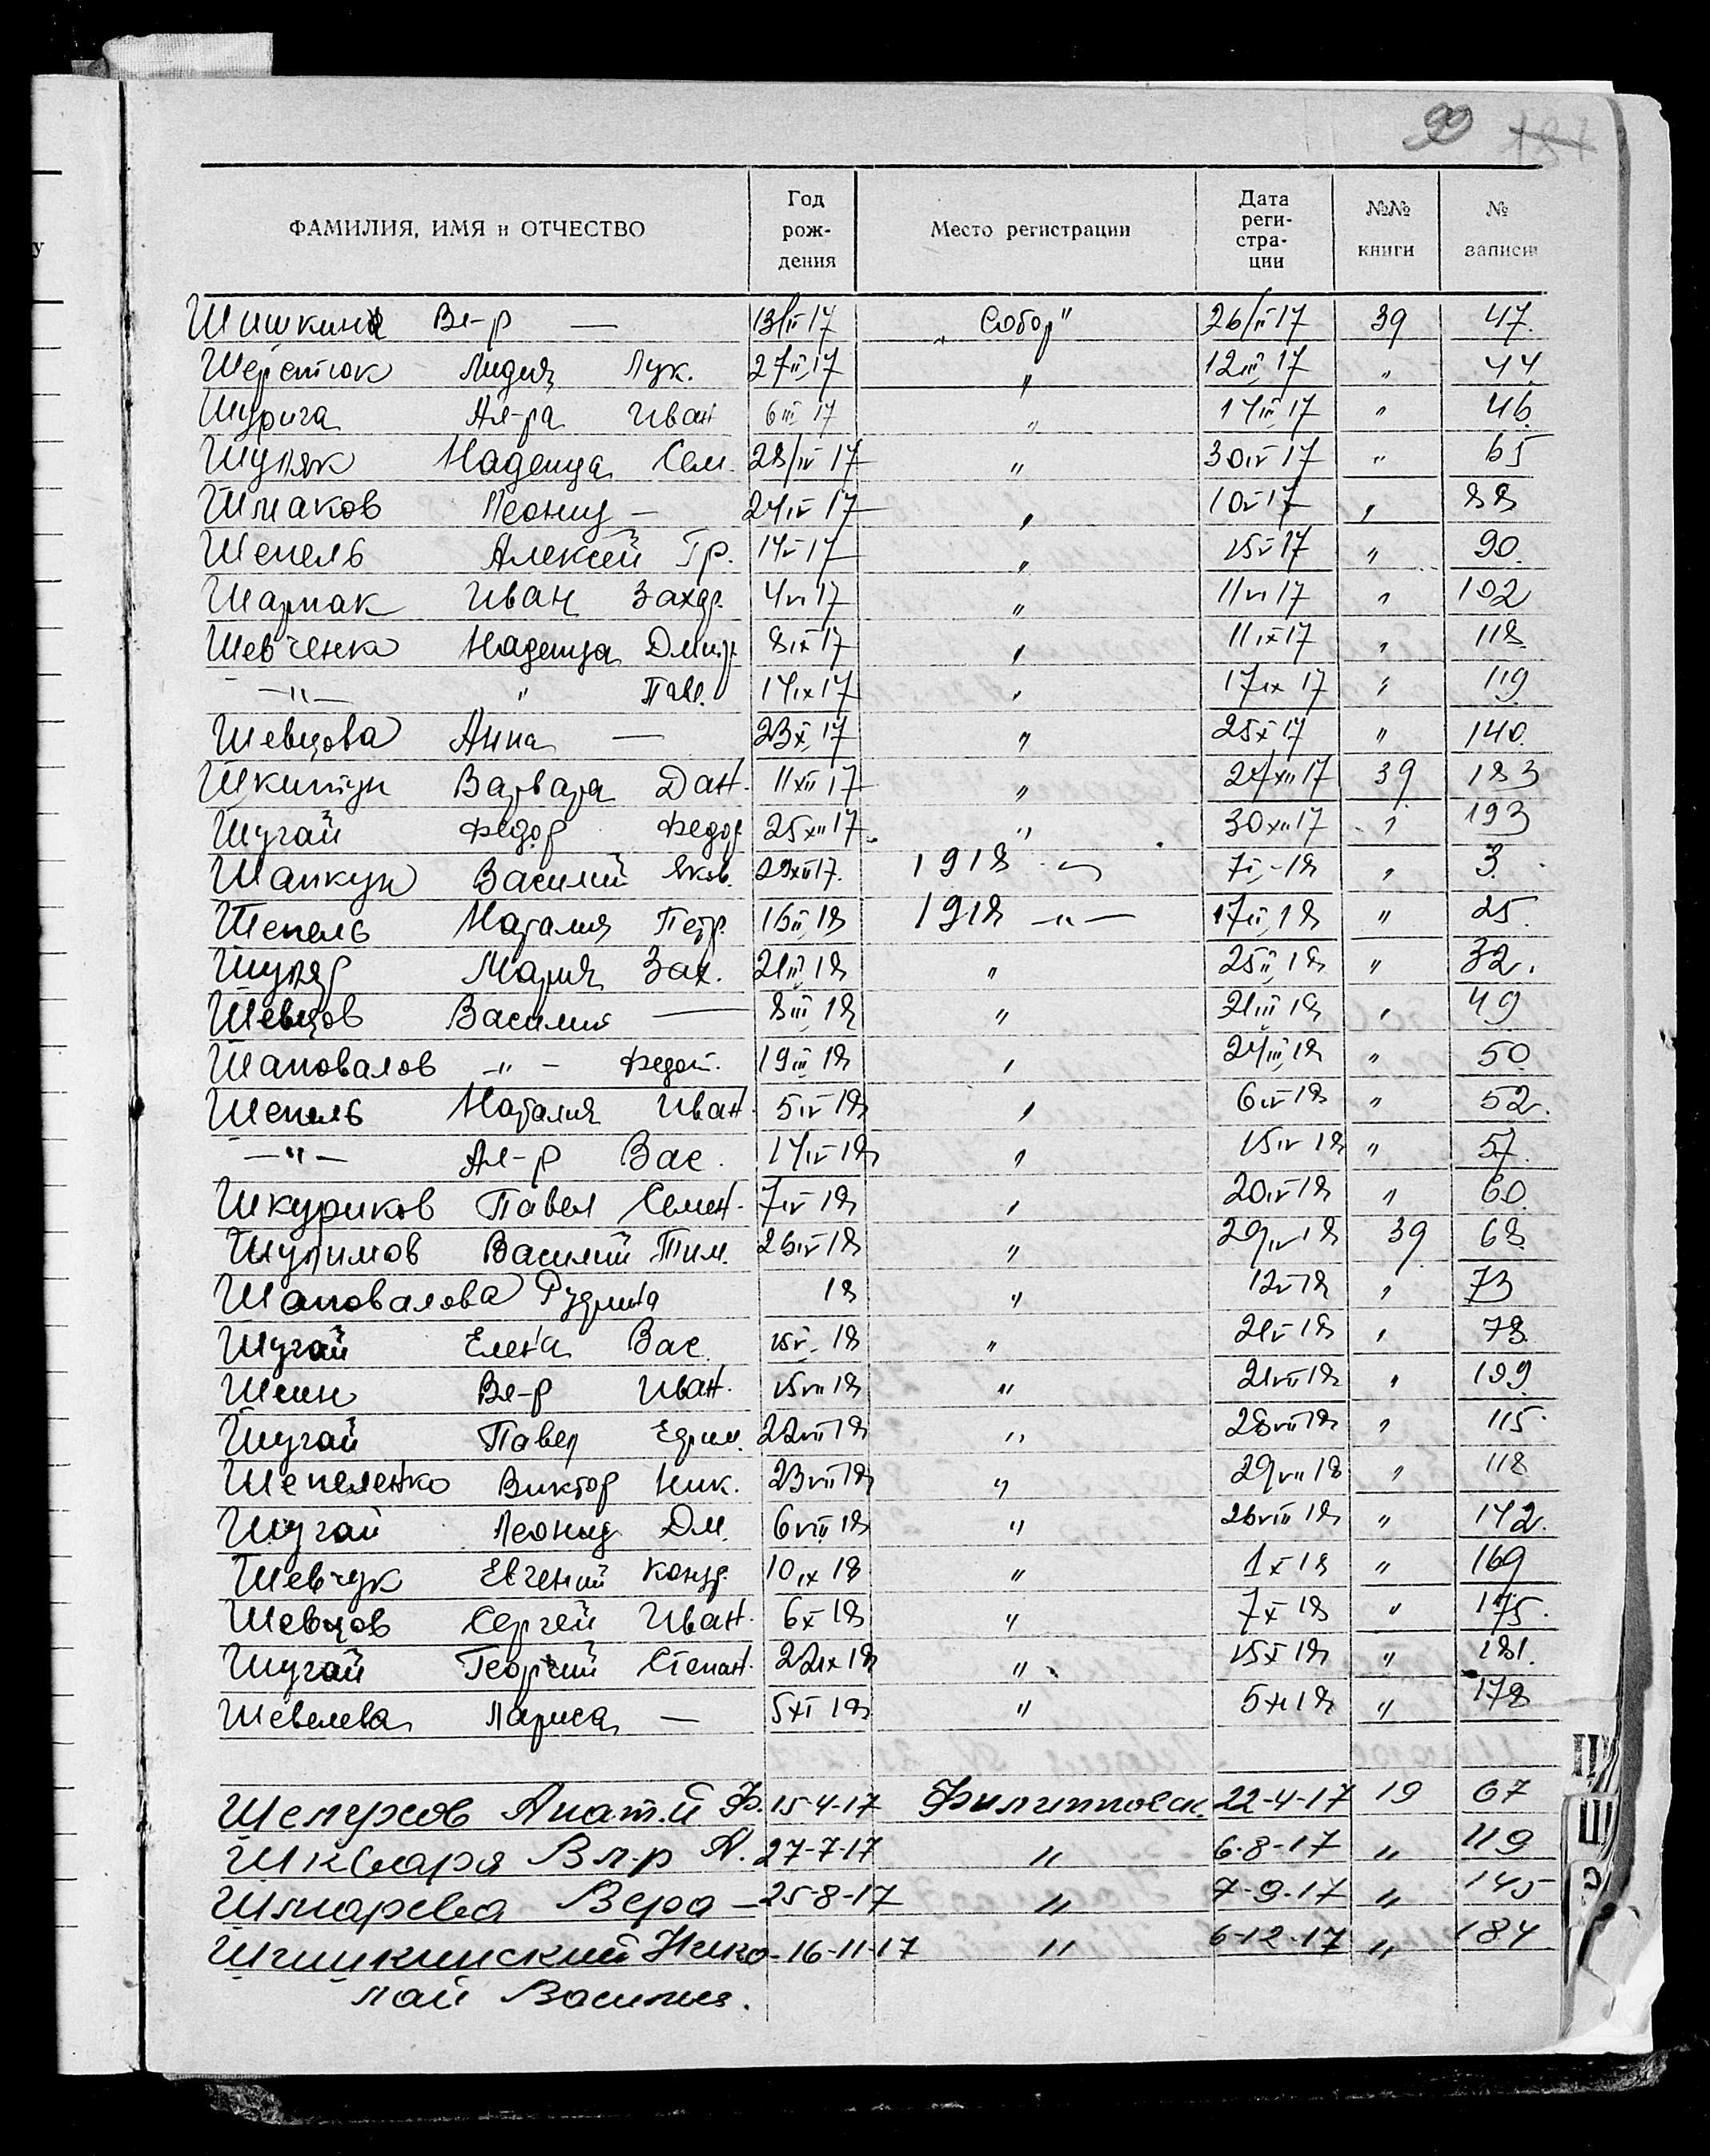 99 191
ФАМИЛИЯ, ИМЯ и ОТЧЕСТВО Год рождения Место регистрации Дата регистрации №№ книги № записи
Шишкина Вл-р — 13/II 17 "Собор" 26/II 17 39 47.
Шеретюк Лидия Лук. 27 II 17 " 12 III 17 " 44
Шурига Ал-ра Иван 6 III 17 " 17 III 17 " 46.
Шуляк Надежда Сем. 28/IV 17 " 30 IV 17 " 65
Шмаков Леонид — 24 IV 17 " 10 V 17 " 88
Шепель Алексей Гр. 14 V 17 " 15 V 17 " 90.
Шармак Иван Захар. 4 VI 17 " 11 VI 17 " 102
Шевченко Надежда Дмитр 8 IX 17 " 11 IX 17 " 118
—"— " Павл. 14 IX 17 " 17 IX 17 " 119
Шевцова Анна — 23 X 17 " 25 X 17 " 140.
Шкитун Варвара Дан. 11 XII 17 " 24 XII 17 39 183
Шугай Федор Федор 25 XII 17 " 30 XII 17 " 193
Шапкун Василий Яков. 29 XII 17. 1918 7 I -18 " 3.
Шепель Наталия Петр. 16 II 18 1918 —"— 17 II 18 " 25.
Шуляр Мария Зах. 21 II 18 " 25 II 18 " 32.
Шевцов Василий — 8 III 18 " 21 III 18 " 49
Шаповалов —"— Федот. 19 III 18 " 24 III 18 " 50.
Шепель Наталия Иван. 5 IV 18 " 6 IV 18 " 52.
—"— Ал-р Вас. 14 IV 18 " 15 IV 18 " 57.
Шкуриков Павел Семен. 7 IV 18 " 20 IV 18 " 60.
Шулимов Василий Тим. 26 IV 18 " 29 IV 18 39 68.
Шаповалова 18 " 12 V 18 " 73
Шугай Елена Вас. 15 V 18 " 21 V 18 " 78.
Шеин Вл-р Иван. 15 VII 18 " 21 VII 18 " 109.
Шугай Павел Ефим. 22 VII 18 " 28 VII 18 " 115.
Шепеленко Виктор Ник. 23 VII 18 " 29 VII 18 " 118
Шугай Леонид Дм. 6 VIII 18 " 26 VIII 18 " 142.
Шевчук Евгений Конд. 10 IX 18 " 1 X 18 " 169
Шевцов Сергей Иван. 6 X 18 " 7 X 18 " 175.
Шугай Георгий Степан. 22 IX 18 " 15 X 18 " 181.
Шевелева Лариса — 5 XI 18 " 5 XI 18 " 178
Шепурков Анат.й Ф. 15-4-17 Филипповск. 22-4-17 19 67
Шкваря Вл-р А. 27-7-17 " 6-8-17 " 119
Шмарева Вера — 25-8-17 " 7-9-17 " 145
Шишкинский Нико- 16-11-17 " 6-12-17 " 184
лай Василиев.